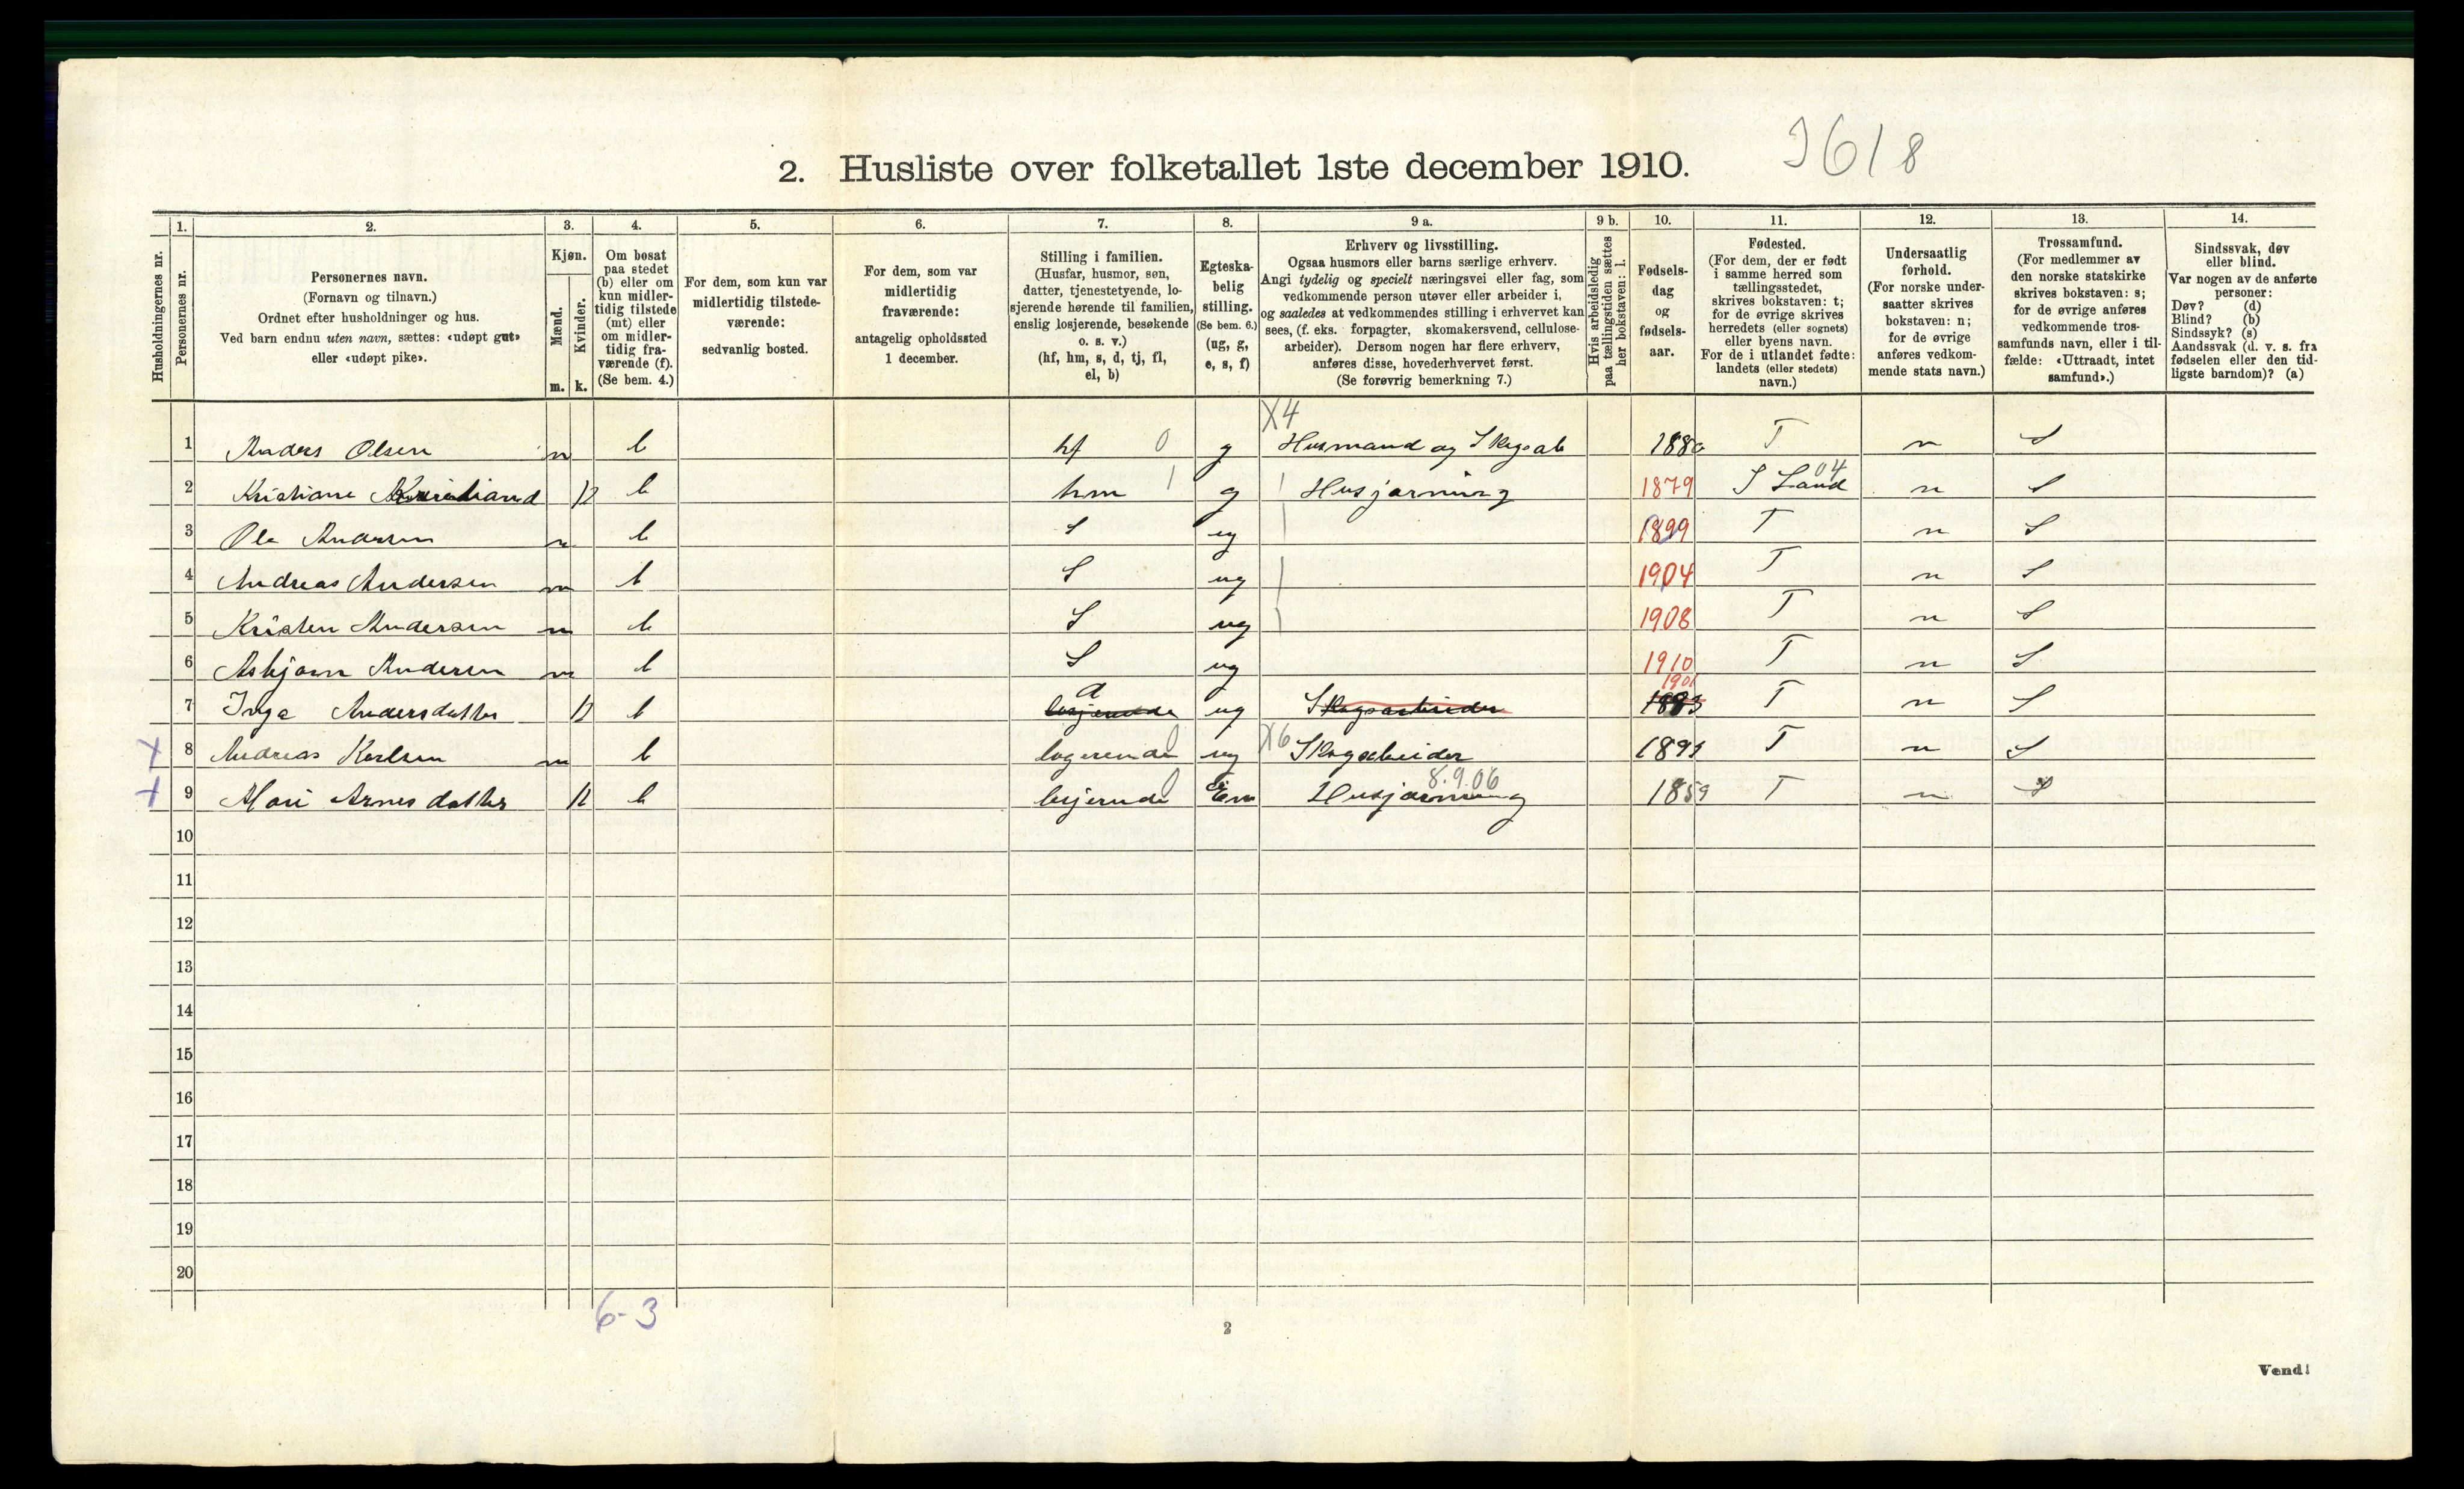 2. Husliste over folketallet 1ste december 1910.
3618
Husholdningernes nr.
1. Personernes nr.
2. Personernes navn.
(Fornavn og tilnavn.)
Ordnet efter husholdninger og hus.
Ved barn endnu uten navn, sættes: «udøpt gut»
eller «udøpt pike».
3. Kjøn.
Mænd. m.
Kvinder. k.
4. Om bosat
paa stedet
(b) eller om
kun midler-
tidig tilstede
(mt) eller
om midler-
tidig fra-
værende (f).
(Se bem. 4.)
5. For dem, som kun var
midlertidig tilstede-
værende:
sedvanlig bosted.
6. For dem, som var
midlertidig
fraværende:
antagelig opholdssted
1 december.
7. Stilling i familien.
(Husfar, husmor, søn,
datter, tjenestetyende, lo-
sjerende hørende til familien,
enslig losjerende, besøkende
o. s. v.)
(hf, hm, s, d, tj, fl,
el, b)
8. Egteska-
belig
stilling.
(Se bem. 6.)
(ug, g,
e, s, f)
9 a. Erhverv og livsstilling.
Ogsaa husmors eller barns særlige erhverv.
Angi tydelig og specielt næringsvei eller fag, som
vedkommende person utøver eller arbeider i,
og saaledes at vedkommendes stilling i erhvervet kan
sees, (f. eks. forpagter, skomakersvend, cellulose-
arbeider). Dersom nogen har flere erhverv,
anføres disse, hovederhvervet først.
(Se forøvrig bemerkning 7.)
9 b. Hvis arbeidsledig
paa tællingstiden sættes
her bokstaven: l.
10. Fødsels-
dag
og
fødsels-
aar.
11. Fødested.
(For dem, der er født
i samme herred som
tællingsstedet,
skrives bokstaven: t;
for de øvrige skrives
herredets (eller sognets)
eller byens navn.
For de i utlandet fødte:
landets (eller stedets)
navn.)
12. Undersaatlig
forhold.
(For norske under-
saatter skrives
bokstaven: n;
for de øvrige
anføres vedkom-
mende stats navn.)
13. Trossamfund.
(For medlemmer av
den norske statskirke
skrives bokstaven: s;
for de øvrige anføres
vedkommende tros-
samfunds navn, eller i til-
fælde: «Uttraadt, intet
samfund».)
14. Sindssvak, døv
eller blind.
Var nogen av de anførte
personer:
Døv? (d)
Blind? (b)
Sindssyk? (s)
Aandssvak (d. v. s. fra
fødselen eller den tid-
ligste barndom)? (a)
X4
1 Anders Olsen m b hf 0 g Husmand og Skogsab 1880 T n S
04
2 Kristiane k b hm 1 g Husjærning 1879 S Land n S
3 Ole Andersen m b S ug 1899 T n S
4 Andreas Andersen m b S ug 1904 T n S
5 Kristen Andersen m b S ug 1908 T n S
6 Asbjørn Andersen m b S ug 1910 T n S
d 1901
7 Inga Andersdatter k b losjerende ug Skogsarbeider 1883 T n S
X 8 Andreas Karlsen m b logerende 0 ug X6 Skogarbeider T n S
8.9.06
X 9 Mari Arnesdatter k b losjerende 0 Em Husjærning 1859 T n S
10
11
12
13
14
15
16
17
18
19
20
6-3
2
Vend!